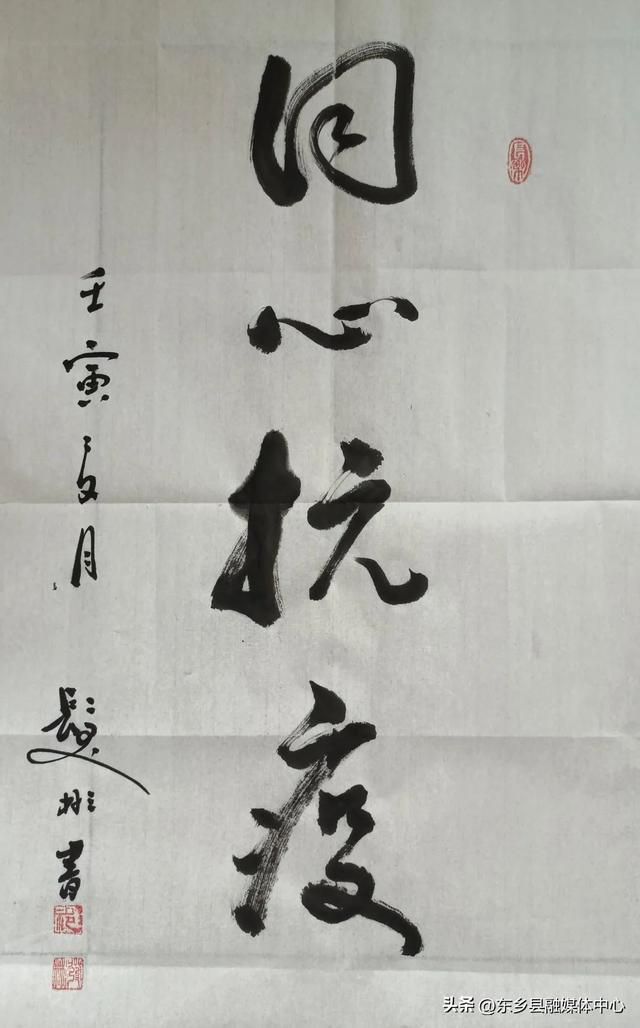 同心抗疫
壬寅之夏月
髮彬書
头条 @东乡县融媒体中心